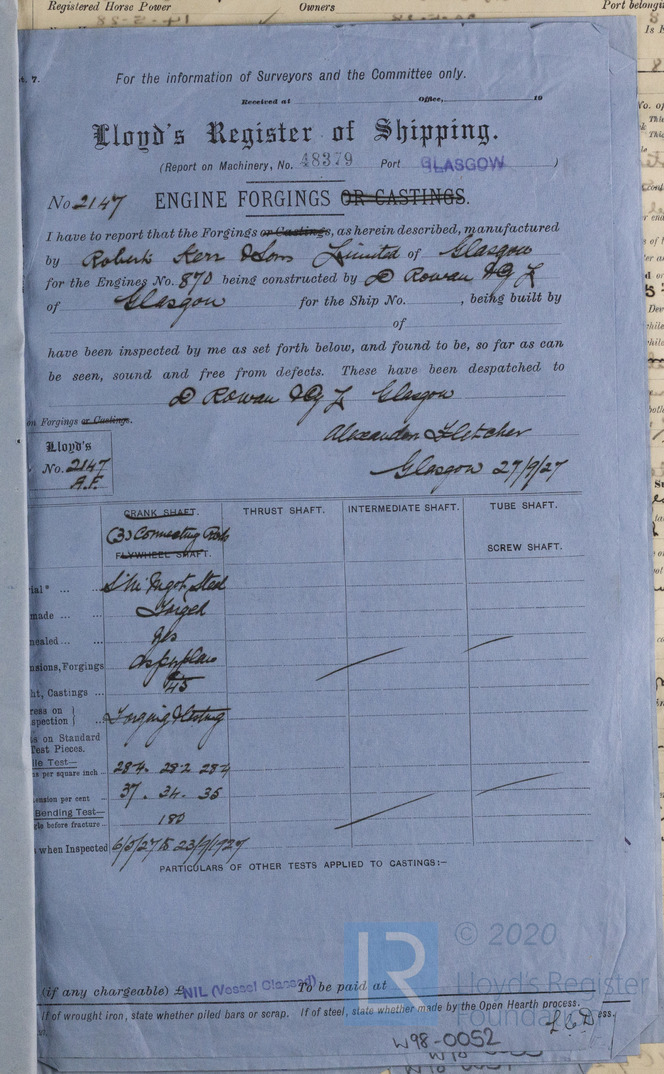 Registered Horse Power Owners Port belongin
t. 7.
For the information of Surveyors and the Committee only.
Received at Office, 19
Lloyd's Register of Shipping.
(Report on Machinery, No. 48379 Port GLASGOW )
No 2147 ENGINE FORGINGS OR CASTINGS.
I have to report that the Forgings or Castings, as herein described, manufactured
by Robert Kerr & Sons Limited of Glasgow
for the Engines No. 870 being constructed by D Rowan & Co Ld
of Glasgow for the Ship No. , being built by
of
have been inspected by me as set forth below, and found to be, so far as can
be seen, sound and free from defects. These have been despatched to
D Rowan & Co Ld Glasgow
on Forgings or Castings.
Alexander Fletcher
Lloyd's
No. 2147
A.F.
Glasgow 27/9/27
CRANK SHAFT. THRUST SHAFT. INTERMEDIATE SHAFT. TUBE SHAFT.
(3) Connecting Rods
FLYWHEEL SHAFT. SCREW SHAFT.
ial* ... ... S M Ingot Steel
made ... ... Forged
nealed ... ... Yes
nsions, Forgings As per plan
ht, Castings ... 45
ress on
spection Forging & testing
s on Standard
Test Pieces.
le Test—
ns per square inch 28.4. 28.2 28.4
ension per cent 37. 34. 35
Bending Test—
gle before fracture 180
when Inspected 6/5/27 to 23/9/1927
PARTICULARS OF OTHER TESTS APPLIED TO CASTINGS:—
© 2020
LR Lloyd's Register
Foundation
(if any chargeable) £ NIL (Vessel Classed) To be paid at
If of wrought iron, state whether piled bars or scrap. If of steel, state whether made by the Open Hearth process.
W98-0052